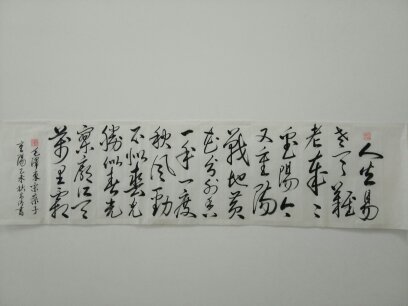 人生易
老天難
老歲々
重陽今
又重陽
戰地黃
花分外香
一年一度
秋風勁
不似春光
勝似春光
寥廓江天
萬里霜
毛澤東采桑子
重陽乙未秋書